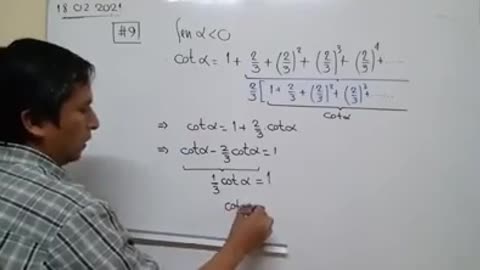 18 02 2021
#9
Sen α < 0
cot α = 1 + 2/3 + (2/3)² + (2/3)³ + (2/3)⁴ + .....
2/3 [ 1 + 2/3 + (2/3)² + (2/3)³ + .....
cot α
⇒ cot α = 1 + 2/3 · cot α
⇒ cot α - 2/3 cot α = 1
1/3 cot α = 1
cot